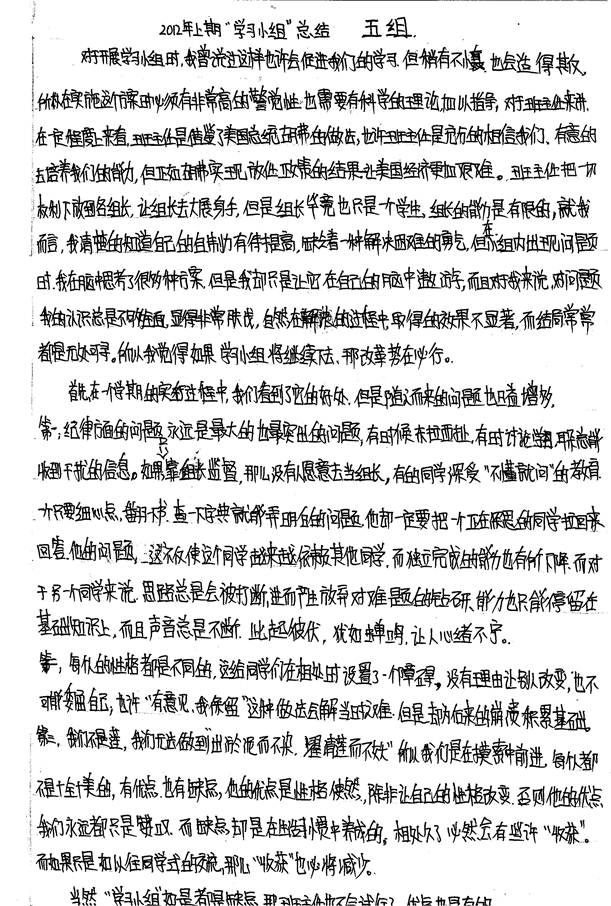 2012年上期"学习小组"总结 五组.
对于开展学习小组时,我曾说过这样也许会促进我们的学习.但稍有不慎.也会造得其反.
所以在实施这个方案时必须有非常高的警觉性.也需要有科学的理论加以指导,对于班主任来讲.
在一定程度上来看,班主任是借鉴了美国总统胡佛的做法,也许班主任是充分的相信我们、有意的
去培养我们的能力,但正如胡佛实现放任政策的结果让美国经济更加艰难。班主任把一切
权利下放到各组长,让组长去大展身手,但是组长毕竟也只是一个学生,组长的能力是有限的,就我
而言,我清楚的知道自己的自制力有待提高,缺乏着一种解决困难的勇气,但在组内出现问题
时.我在脑中思考了很多种方案,但是我却只是让它在自己的脑中遨游,而且对我来说,对问题
我的认识总是不够全面,显得非常肤浅,自然在解决的过程中取得的效果不显著,而结局常常
都是无处可寻。所以我觉得如果学习小组将继续下去.那改革势在必行。
首先在一个学期的实行过程中,我们看到了它的好处、但是随之而来的问题也日益增多.
第一:纪律方面的问题永远是最大的也最突出的问题,有时候东拉西扯,有时讨论学习,耳朵总能
收到干扰的信息。如果靠组长监督,那么没有人愿意去当组长,有的同学深受"不懂就问"的教育.
一个只要细心点、翻下书.查一下字典就能弄明白的问题.他却一定要把一个正在思考的同学拉回来
回答他的问题,这不仅使这个同学越来越依赖其他同学.而独立完成的能力也有所下降.而对
于另一个同学来说.思路总是会被打断,进而产生放弃对难题的钻研,能力也只能停留在
基础知识上,而且声音总是不断.此起彼伏,犹如蝉鸣.让人心绪不宁。
第二,每个人的性格都是不同的,这给同学们在相处时设置了一个障碍,没有理由让别人改变,也不
可能委屈自己,也许"有意见.我保留"这种做法会解当时之难.但是却为后来的崩溃积累基础。
第三,我们不是莲,我们无法做到"出淤泥而不染.濯清莲而不妖"所以我们是在摸索中前进.每个人都
不是十全十美的,有优点.也有缺点,他的优点是性格使然,除非让自己的性格改变.否则他的优点
我们永远都只是赞叹.而缺点却是在生活习惯中养成的,相处久了必然会有些许"收获"。
而如果只是如以往同学式的交流,那么"收获"也必将减少。
当然"学习小组"如是若只是缺点.那班主任也不会试行了.优点也是有的